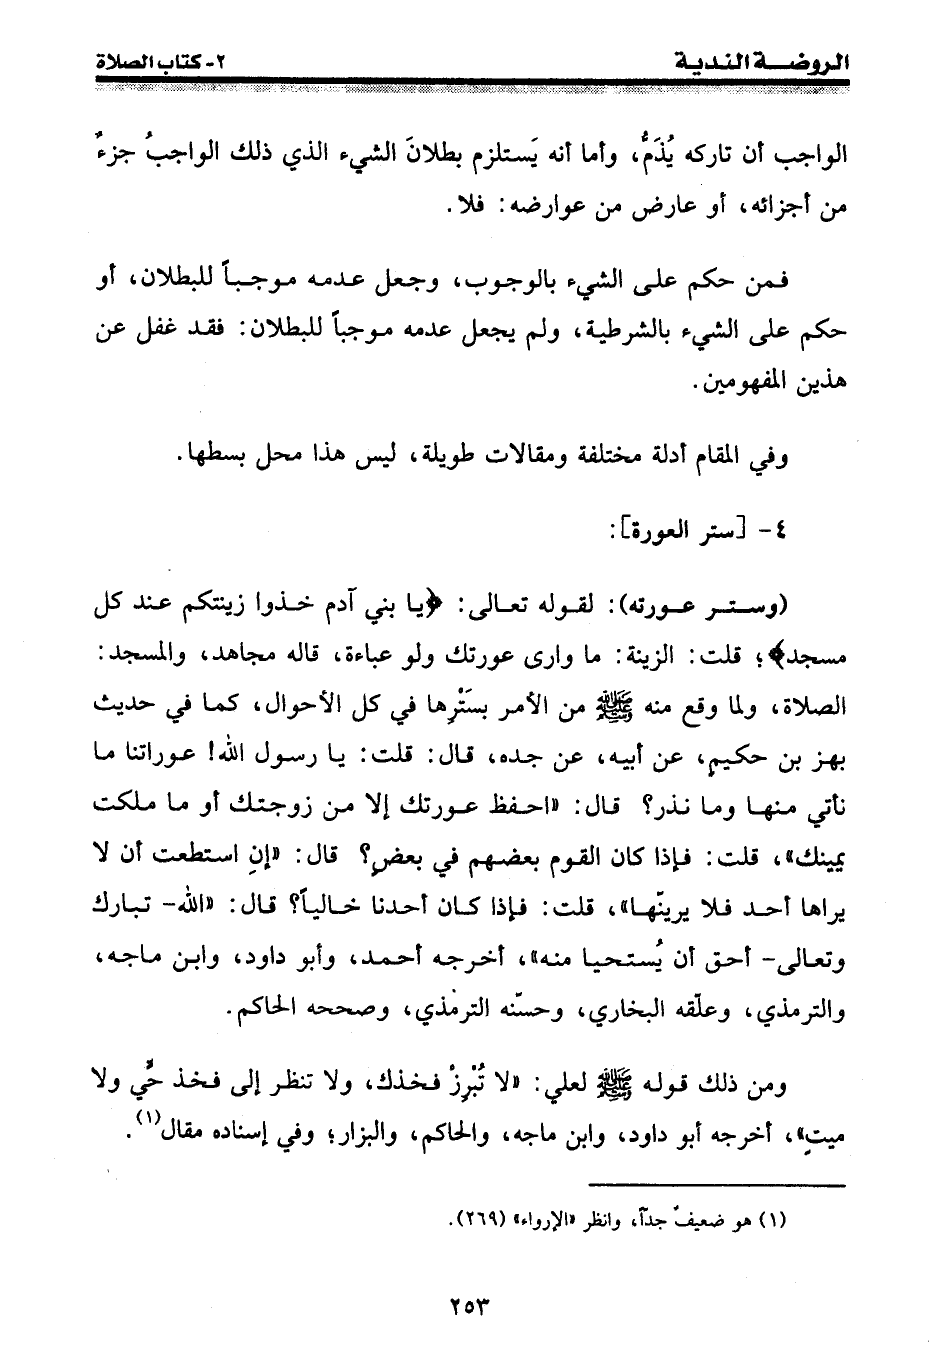 الروضة الندية
٢- كتاب الصلاة
الواجب أن تاركه يُذَمُّ، وأما أنه يَستلزم بطلانَ الشيء الذي ذلك الواجبُ جزءٌ
من أجزائه، أو عارض من عوارضه: فلا.
فمن حكم على الشيء بالوجوب، وجعل عدمه موجباً للبطلان، أو
حكم على الشيء بالشرطية، ولم يجعل عدمه موجباً للبطلان: فقد غفل عن
هذين المفهومين.
وفي المقام أدلة مختلفة ومقالات طويلة، ليس هذا محل بسطها.
٤- [ستر العورة]:
(وستر عورته): لقوله تعالى: ﴿يا بني آدم خذوا زينتكم عند كل
مسجد﴾؛ قلت: الزينة: ما وارى عورتك ولو عباءة، قاله مجاهد، والمسجد:
الصلاة، ولما وقع منه ﷺ من الأمر بسَتْرِها في كل الأحوال، كما في حديث
بهز بن حكيم، عن أبيه، عن جده، قال: قلت: يا رسول الله! عوراتنا ما
نأتي منها وما نذر؟ قال: «احفظ عورتك إلا من زوجتك أو ما ملكت
يمينك»، قلت: فإذا كان القوم بعضهم في بعضٍ؟ قال: «إنِ استطعت أن لا
يراها أحد فلا يرينّها»، قلت: فإذا كان أحدنا خالياً؟ قال: «الله- تبارك
وتعالى- أحق أن يُستحيا منه»، أخرجه أحمد، وأبو داود، وابن ماجه،
والترمذي، وعلّقه البخاري، وحسّنه الترمذي، وصححه الحاكم.
ومن ذلك قوله ﷺ لعلي: «لا تُبْرِزْ فخذك، ولا تنظر إلى فخذ حيٍّ ولا
ميتٍ»، أخرجه أبو داود، وابن ماجه، والحاكم، والبزار؛ وفي إسناده مقال(١).
(١) هو ضعيفٌ جداً، وانظر «الإرواء» (٢٦٩).
٢٥٣